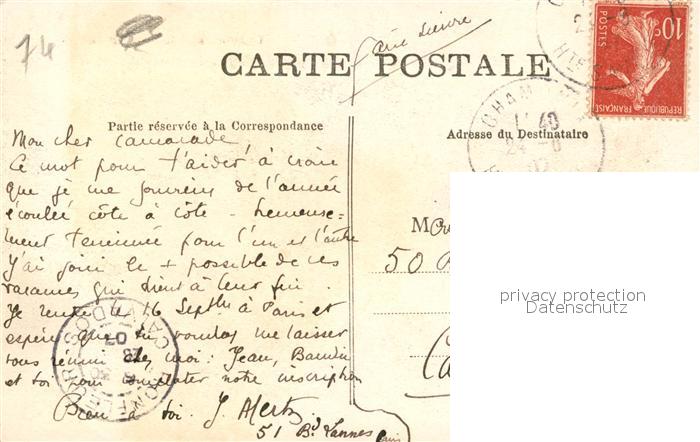 74
faire suivre
CARTE POSTALE
10c
POSTES
REPUBLIQUE FRANÇAISE
CHAM
1 40
24 - 8
07
Partie réservée à la Correspondance
Adresse du Destinataire
Mon cher camarade,
Ce mot pour t'aider à croire
que je me souviens de l'année
écoulée côte à côte - heureuse=
ment terminée pour l'un et l'autre
J'ai joui le + possible de ces
vacances qui tirent à leur fin.
Je rentre le 16 Septbre à Paris et
espère que tu voudras me laisser
vous réunir chez moi : Jean, Baudin
et toi pour complater notre inscription
Bien à toi. J. Mertz
51 Bd Lannes Paris
M
50
Ca
HONFLEUR CALVADOS
07
privacy protection
Datenschutz